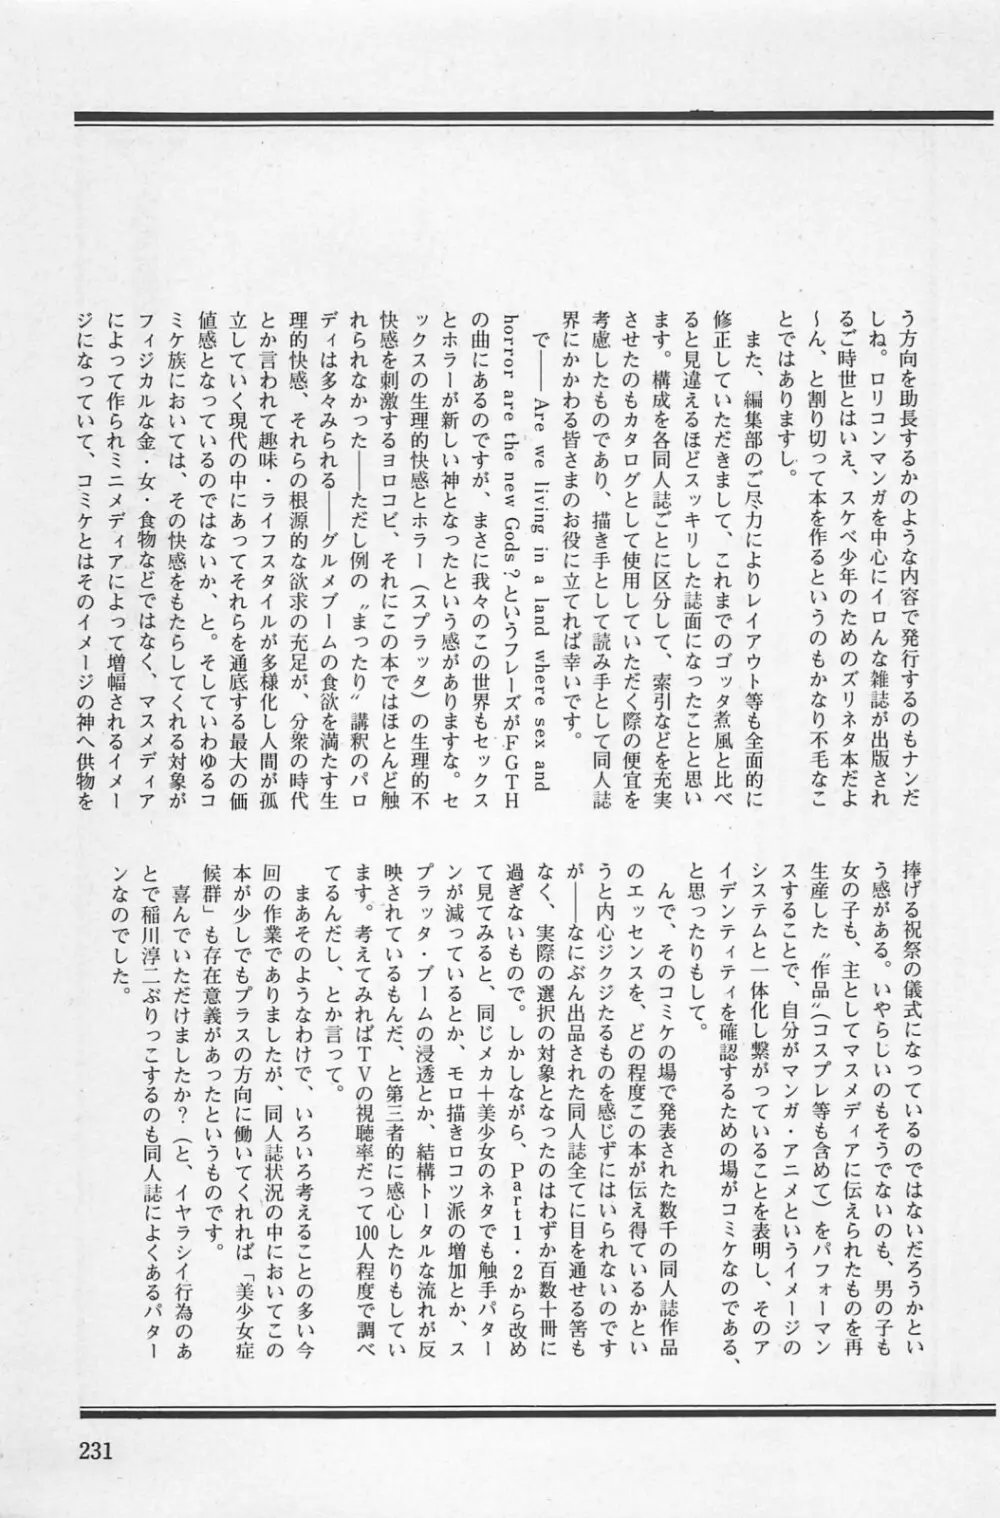 う方向を助長するかのような内容で発行するのもナンだ
しね。ロリコンマンガを中心にイロんな雑誌が出版され
るご時世とはいえ、スケベ少年のためのズリネタ本だよ
～ん、と割り切って本を作るというのもかなり不毛なこ
とではありますし。
また、編集部のご尽力によりレイアウト等も全面的に
修正していただきまして、これまでのゴッタ煮風と比べ
ると見違えるほどスッキリした誌面になったことと思い
ます。構成を各同人誌ごとに区分して、索引などを充実
させたのもカタログとして使用していただく際の便宜を
考慮したものであり、描き手として読み手として同人誌
界にかかわる皆さまのお役に立てれば幸いです。
で――Are we living in a land where sex and
horror are the new Gods？というフレーズがＦＧＴＨ
の曲にあるのですが、まさに我々のこの世界もセックス
とホラーが新しい神となったという感がありますな。セ
ックスの生理的快感とホラー（スプラッタ）の生理的不
快感を刺激するヨロコビ、それにこの本ではほとんど触
れられなかった――ただし例の〝まったり〟講釈のパロ
ディは多々みられる――グルメブームの食欲を満たす生
理的快感、それらの根源的な欲求の充足が、分衆の時代
とか言われて趣味・ライフスタイルが多様化し人間が孤
立していく現代の中にあってそれらを通底する最大の価
値感となっているのではないか、と。そしていわゆるコ
ミケ族においては、その快感をもたらしてくれる対象が
フィジカルな金・女・食物などではなく、マスメディア
によって作られミニメディアによって増幅されるイメー
ジになっていて、コミケとはそのイメージの神へ供物を
捧げる祝祭の儀式になっているのではないだろうかとい
う感がある。いやらしいのもそうでないのも、男の子も
女の子も、主としてマスメディアに伝えられたものを再
生産した〝作品〟（コスプレ等も含めて）をパフォーマン
スすることで、自分がマンガ・アニメというイメージの
システムと一体化し繋がっていることを表明し、そのア
イデンティティを確認するための場がコミケなのである、
と思ったりもして。
んで、そのコミケの場で発表された数千の同人誌作品
のエッセンスを、どの程度この本が伝え得ているかとい
うと内心ジクジたるものを感じずにはいられないのです
が――なにぶん出品された同人誌全てに目を通せる筈も
なく、実際の選択の対象となったのはわずか百数十冊に
過ぎないもので。しかしながら、Part1・2から改め
て見てみると、同じメカ＋美少女のネタでも触手パター
ンが減っているとか、モロ描きロコツ派の増加とか、ス
プラッタ・ブームの浸透とか、結構トータルな流れが反
映されているもんだ、と第三者的に感心したりもしてい
ます。考えてみればＴＶの視聴率だって100人程度で調べ
てるんだし、とか言って。
まあそのようなわけで、いろいろ考えることの多い今
回の作業でありましたが、同人誌状況の中においてこの
本が少しでもプラスの方向に働いてくれれば「美少女症
候群」も存在意義があったというものです。
喜んでいただけましたか？（と、イヤラシイ行為のあ
とで稲川淳二ぶりっこするのも同人誌によくあるパター
ンなのでした。
231